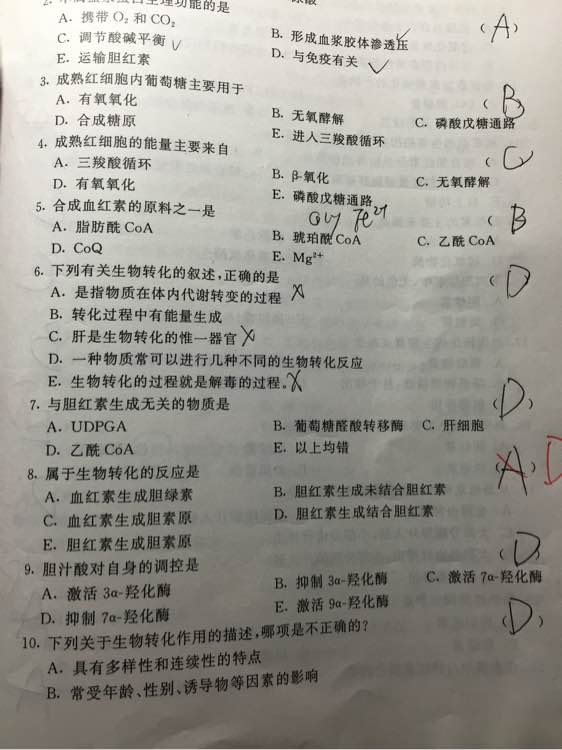 生理功能的是
A. 携带 O₂ 和 CO₂ (A)
C. 调节酸碱平衡 √ B. 形成血浆胶体渗透压 √
E. 运输胆红素 D. 与免疫有关 √
3. 成熟红细胞内葡萄糖主要用于 (B)
A. 有氧氧化 B. 无氧酵解 C. 磷酸戊糖通路
D. 合成糖原 E. 进入三羧酸循环
4. 成熟红细胞的能量主要来自 (C)
A. 三羧酸循环 B. β-氧化 C. 无氧酵解
D. 有氧氧化 E. 磷酸戊糖通路
5. 合成血红素的原料之一是 Gly Fe²⁺ B
A. 脂肪酰 CoA B. 琥珀酰 CoA C. 乙酰 CoA
D. CoQ E. Mg²⁺
6. 下列有关生物转化的叙述,正确的是 (D)
A. 是指物质在体内代谢转变的过程 X
B. 转化过程中有能量生成
C. 肝是生物转化的惟一器官 X
D. 一种物质常可以进行几种不同的生物转化反应
E. 生物转化的过程就是解毒的过程。X
7. 与胆红素生成无关的物质是 (D)
A. UDPGA B. 葡萄糖醛酸转移酶 C. 肝细胞
D. 乙酰 CoA E. 以上均错
8. 属于生物转化的反应是 (A) D
A. 血红素生成胆绿素 B. 胆红素生成未结合胆红素
C. 血红素生成胆素原 D. 胆红素生成结合胆红素
E. 胆红素生成胆素原
9. 胆汁酸对自身的调控是 (D)
A. 激活 3α-羟化酶 B. 抑制 3α-羟化酶 C. 激活 7α-羟化酶
D. 抑制 7α-羟化酶 E. 激活 9α-羟化酶
10. 下列关于生物转化作用的描述,哪项是不正确的? (D)
A. 具有多样性和连续性的特点
B. 常受年龄、性别、诱导物等因素的影响